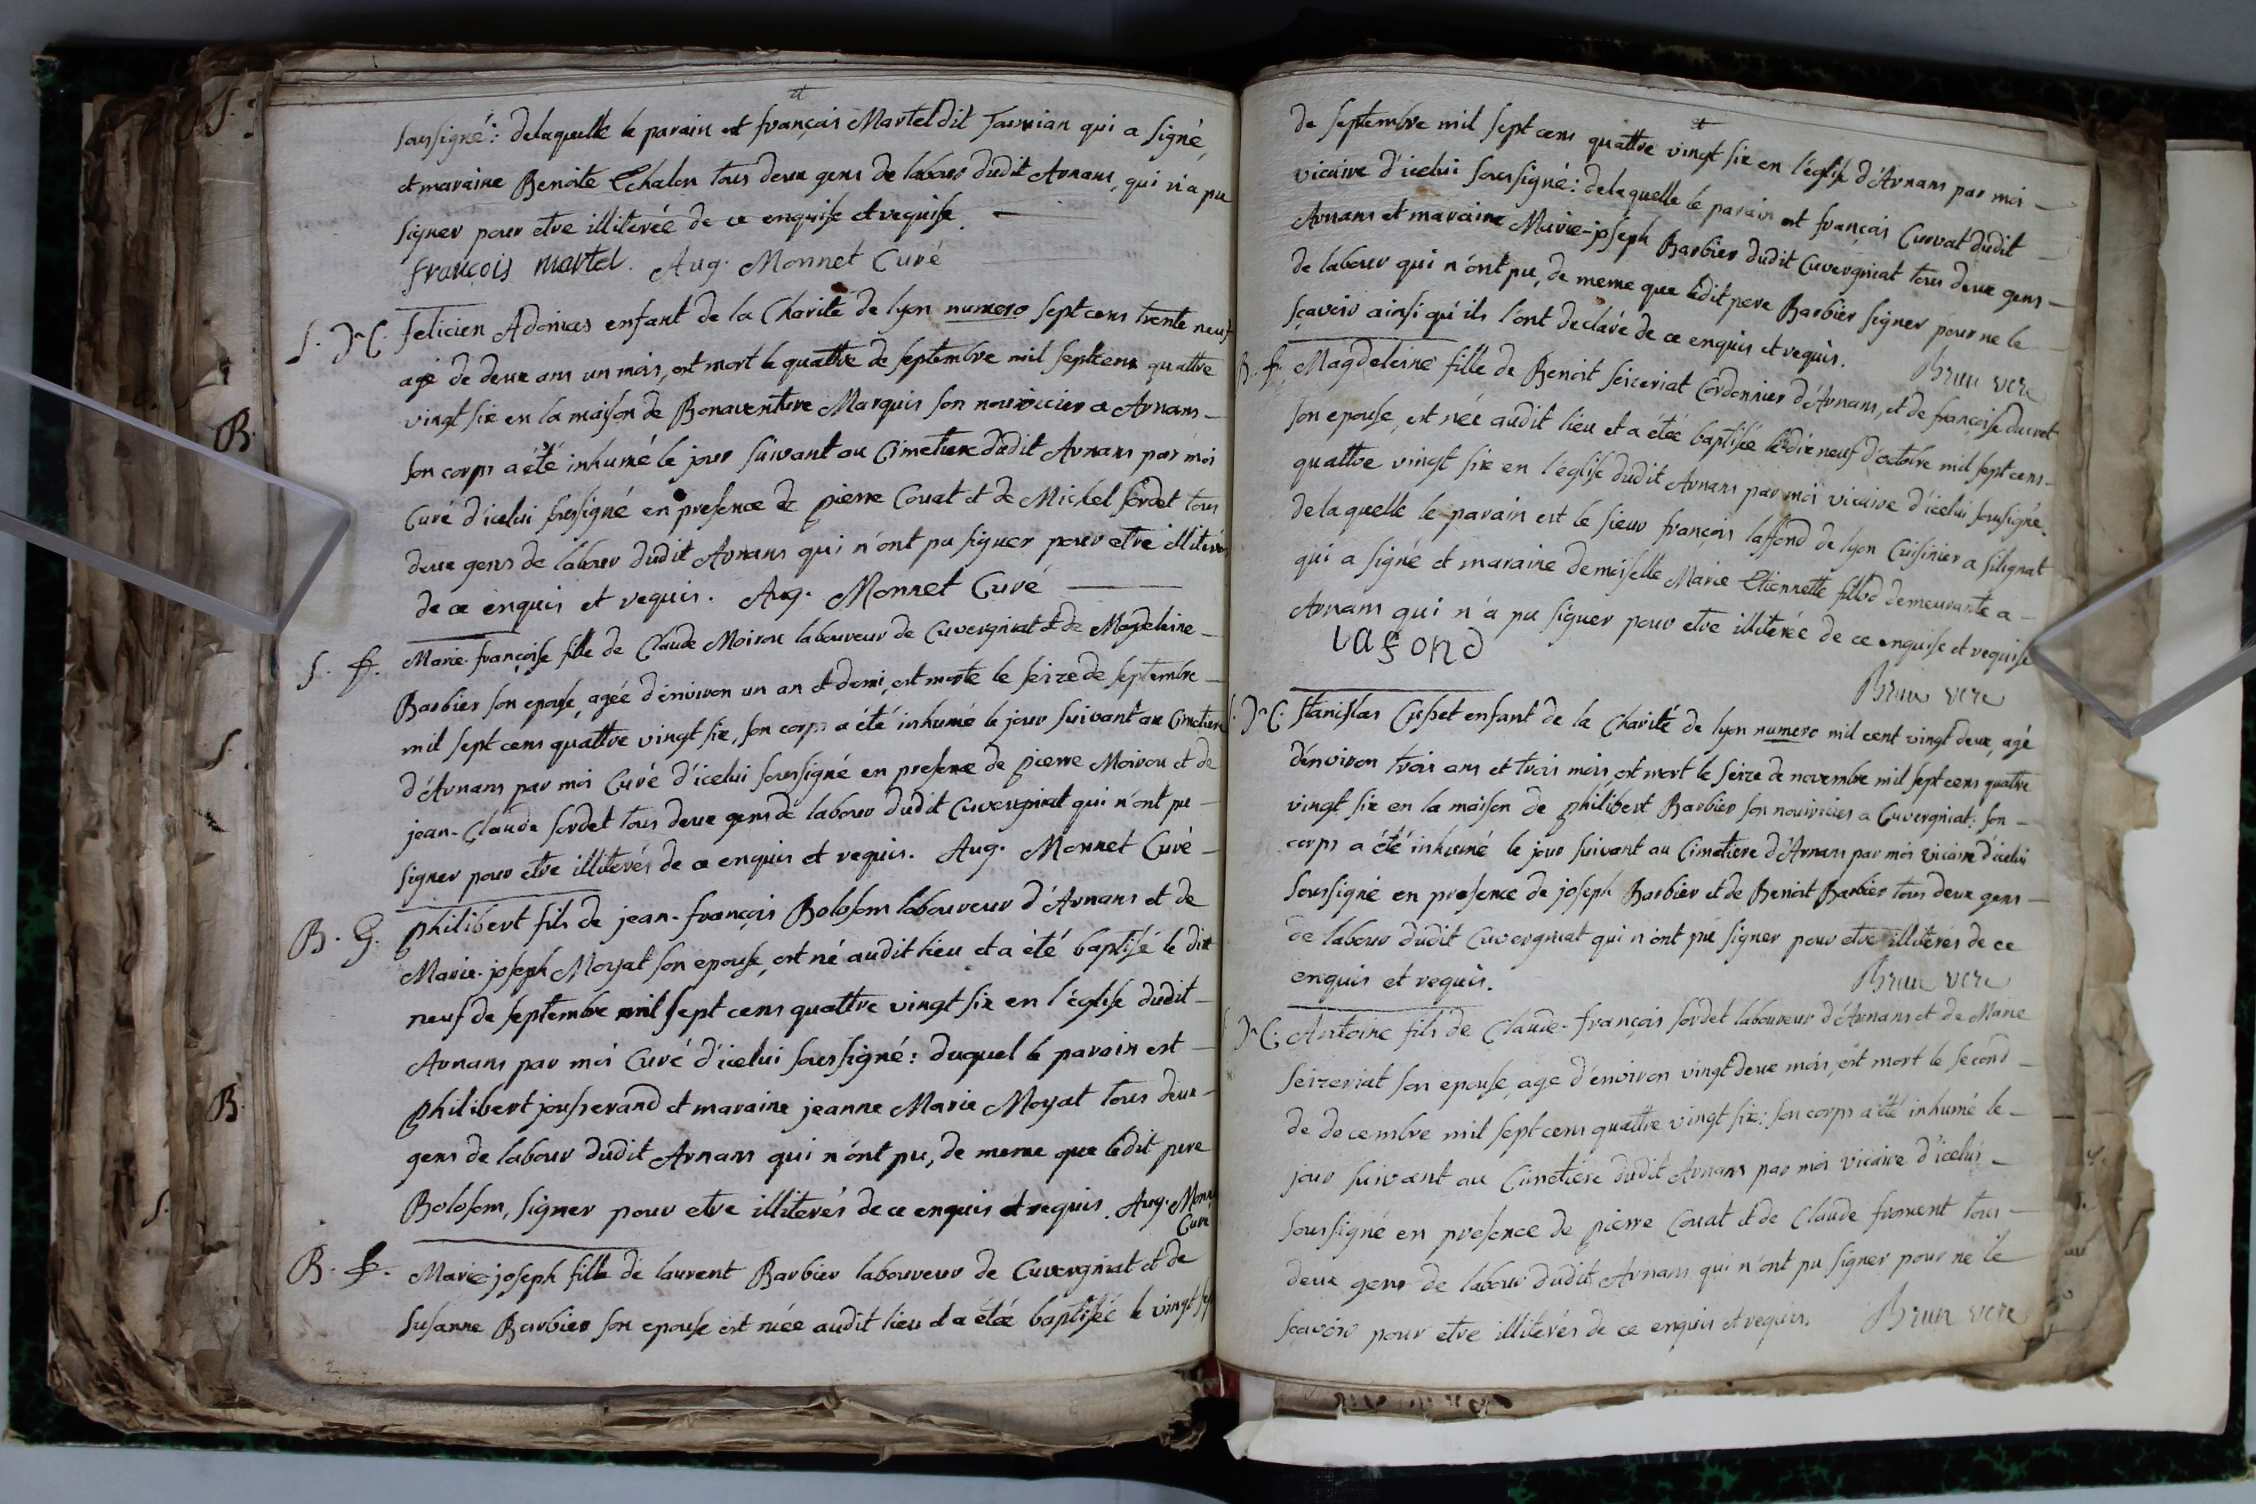 soussigné: delaquelle le parain est françois Martel dit qui a signé
et maraine Benoite Chalon tous deux gens de labour dudit Arnans, qui n'a pu
signer pour etre illiterée de ce enquise et requise.
françois martel. Aug. Monnet Curé
S. J^n C. felicien enfant de la Charité de lyon numero sept cens trente neuf
agé de deux ans un mois, est mort le quattre de septembre mil sept cens quattre
vingt six en la maison de Bonaventure Marquis son nourricier a Arnans
son corps a été inhumé le jour suivant au Cimetiere dudit Arnans par moi
Curé d'icelui soussigné en presence de pierre Couat et de Michel sordet tous
deux gens de labour dudit Arnans qui n'ont pu signer pour etre illiterés
de ce enquis et requis. Aug. Monnet Curé
S. f. Marie-françoise fille de Claude Moirou laboureur de Cuvergniat et de Magdeleine
Barbier son epouse, agée d'environ un an et demi, est morte le seize de septembre
mil sept cens quattre vingt six, son corps a été inhumé le jour suivant au Cimetiere
d'Arnans par moi Curé d'icelui soussigné en presence de pierre Moirou et de
jean-Claude sordet tous deux gens de labour dudit Cuvergniat qui n'ont pu
signer pour etre illiterés de ce enquis et requis. Aug. Monnet Curé
B. G. philibert fils de jean-françois Bolosom laboureur d'Arnans et de
Marie-joseph Moyat son epouse, est né audit lieu et a été baptisé le dix
neuf de septembre mil sept cens quattre vingt six en l'église dudit
Arnans par moi Curé d'icelui soussigné: duquel le parain est
philibert jousserand et maraine jeanne Marie Moyat tous deux
gens de labour dudit Arnans qui n'ont pu, de meme que ledit pere
Bolosom, signer pour etre illiterés de ce enquis et requis. Aug. Monnet
Curé
B. f. Marie-joseph fille de laurent Barbier laboureur de Cuvergniat et de
Susanne Barbier son epouse est née audit lieu et a étée baptisée le vingt
de septembre mil sept cens quattre vingt six en l'église d'Arnans par moi
vicaire d'icelui soussigné: delaquelle le parain est françois Curvat dudit
Arnans et maraine Marie-joseph Barbier dudit Cuvergniat tous deux gens
de labour qui n'ont pu, de meme que ledit pere Barbier signer pour ne le
sçavoir ainsi qu'ils l'ont declaré de ce enquis et requis. Brun vcre
B. f. Magdeleine fille de Benoit Seizeriat Cordonnier d'Arnans, et de françoise ducret
son epouse, est née audit lieu et a étée baptisée le dix neuf d'octobre mil sept cens
quattre vingt six en l'église dudit Arnans par moi vicaire d'icelui soussigné.
delaquelle le parain est le sieur françois laffond de lyon Cuisinier a silignat
qui a signé et maraine demoiselle Marie Etiennette fillod demeurante a
Arnans qui n'a pu signer pour etre illiterée de ce enquise et requise
Lafond
Brun vcre
J^n C. stanislas Cusset enfant de la Charité de lyon numero mil cent vingt deux, agé
d'environ trois ans et trois mois est mort le seize de novembre mil sept cens quattre
vingt six en la maison de philibert Barbier son nouricier a Cuvergniat: son
corps a été inhumé le jour suivant au Cimetiere d'Arnans par moi vicaire d'icelui
soussigné en presence de joseph Barbier et de Benoit Barbier tous deux gens
de labour dudit Cuvergniat qui n'ont pu signer pour etre illiterés de ce
enquis et requis. Brun vcre
J^n C. Antoine fils de Claude-françois sordet laboureur d'Arnans et de Marie
Seizeriat son epouse, agé d'environ vingt deux mois, est mort le second
de decembre mil sept cens quattre vingt six: son corps a été inhumé le
jour suivant au Cimetiere dudit Arnans par moi vicaire d'icelui
soussigné en presence de pierre Couat et de Claude froment tous
deux gens de labour dudit Arnans qui n'ont pu signer pour ne le
sçavoir pour etre illiterés de ce enquis et requis. Brun vcre